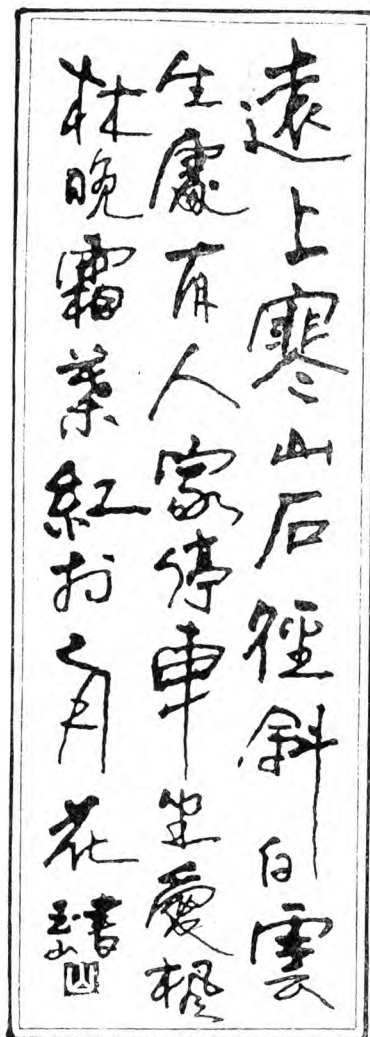 遠上寒山石徑斜白雲
生處有人家停車坐愛楓
林晚霜葉紅於二月花
書
玉山
山